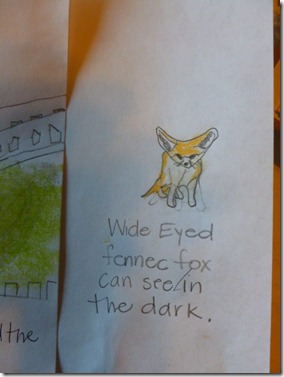 d the
Wide Eyed
fennec fox
can see in
the dark.